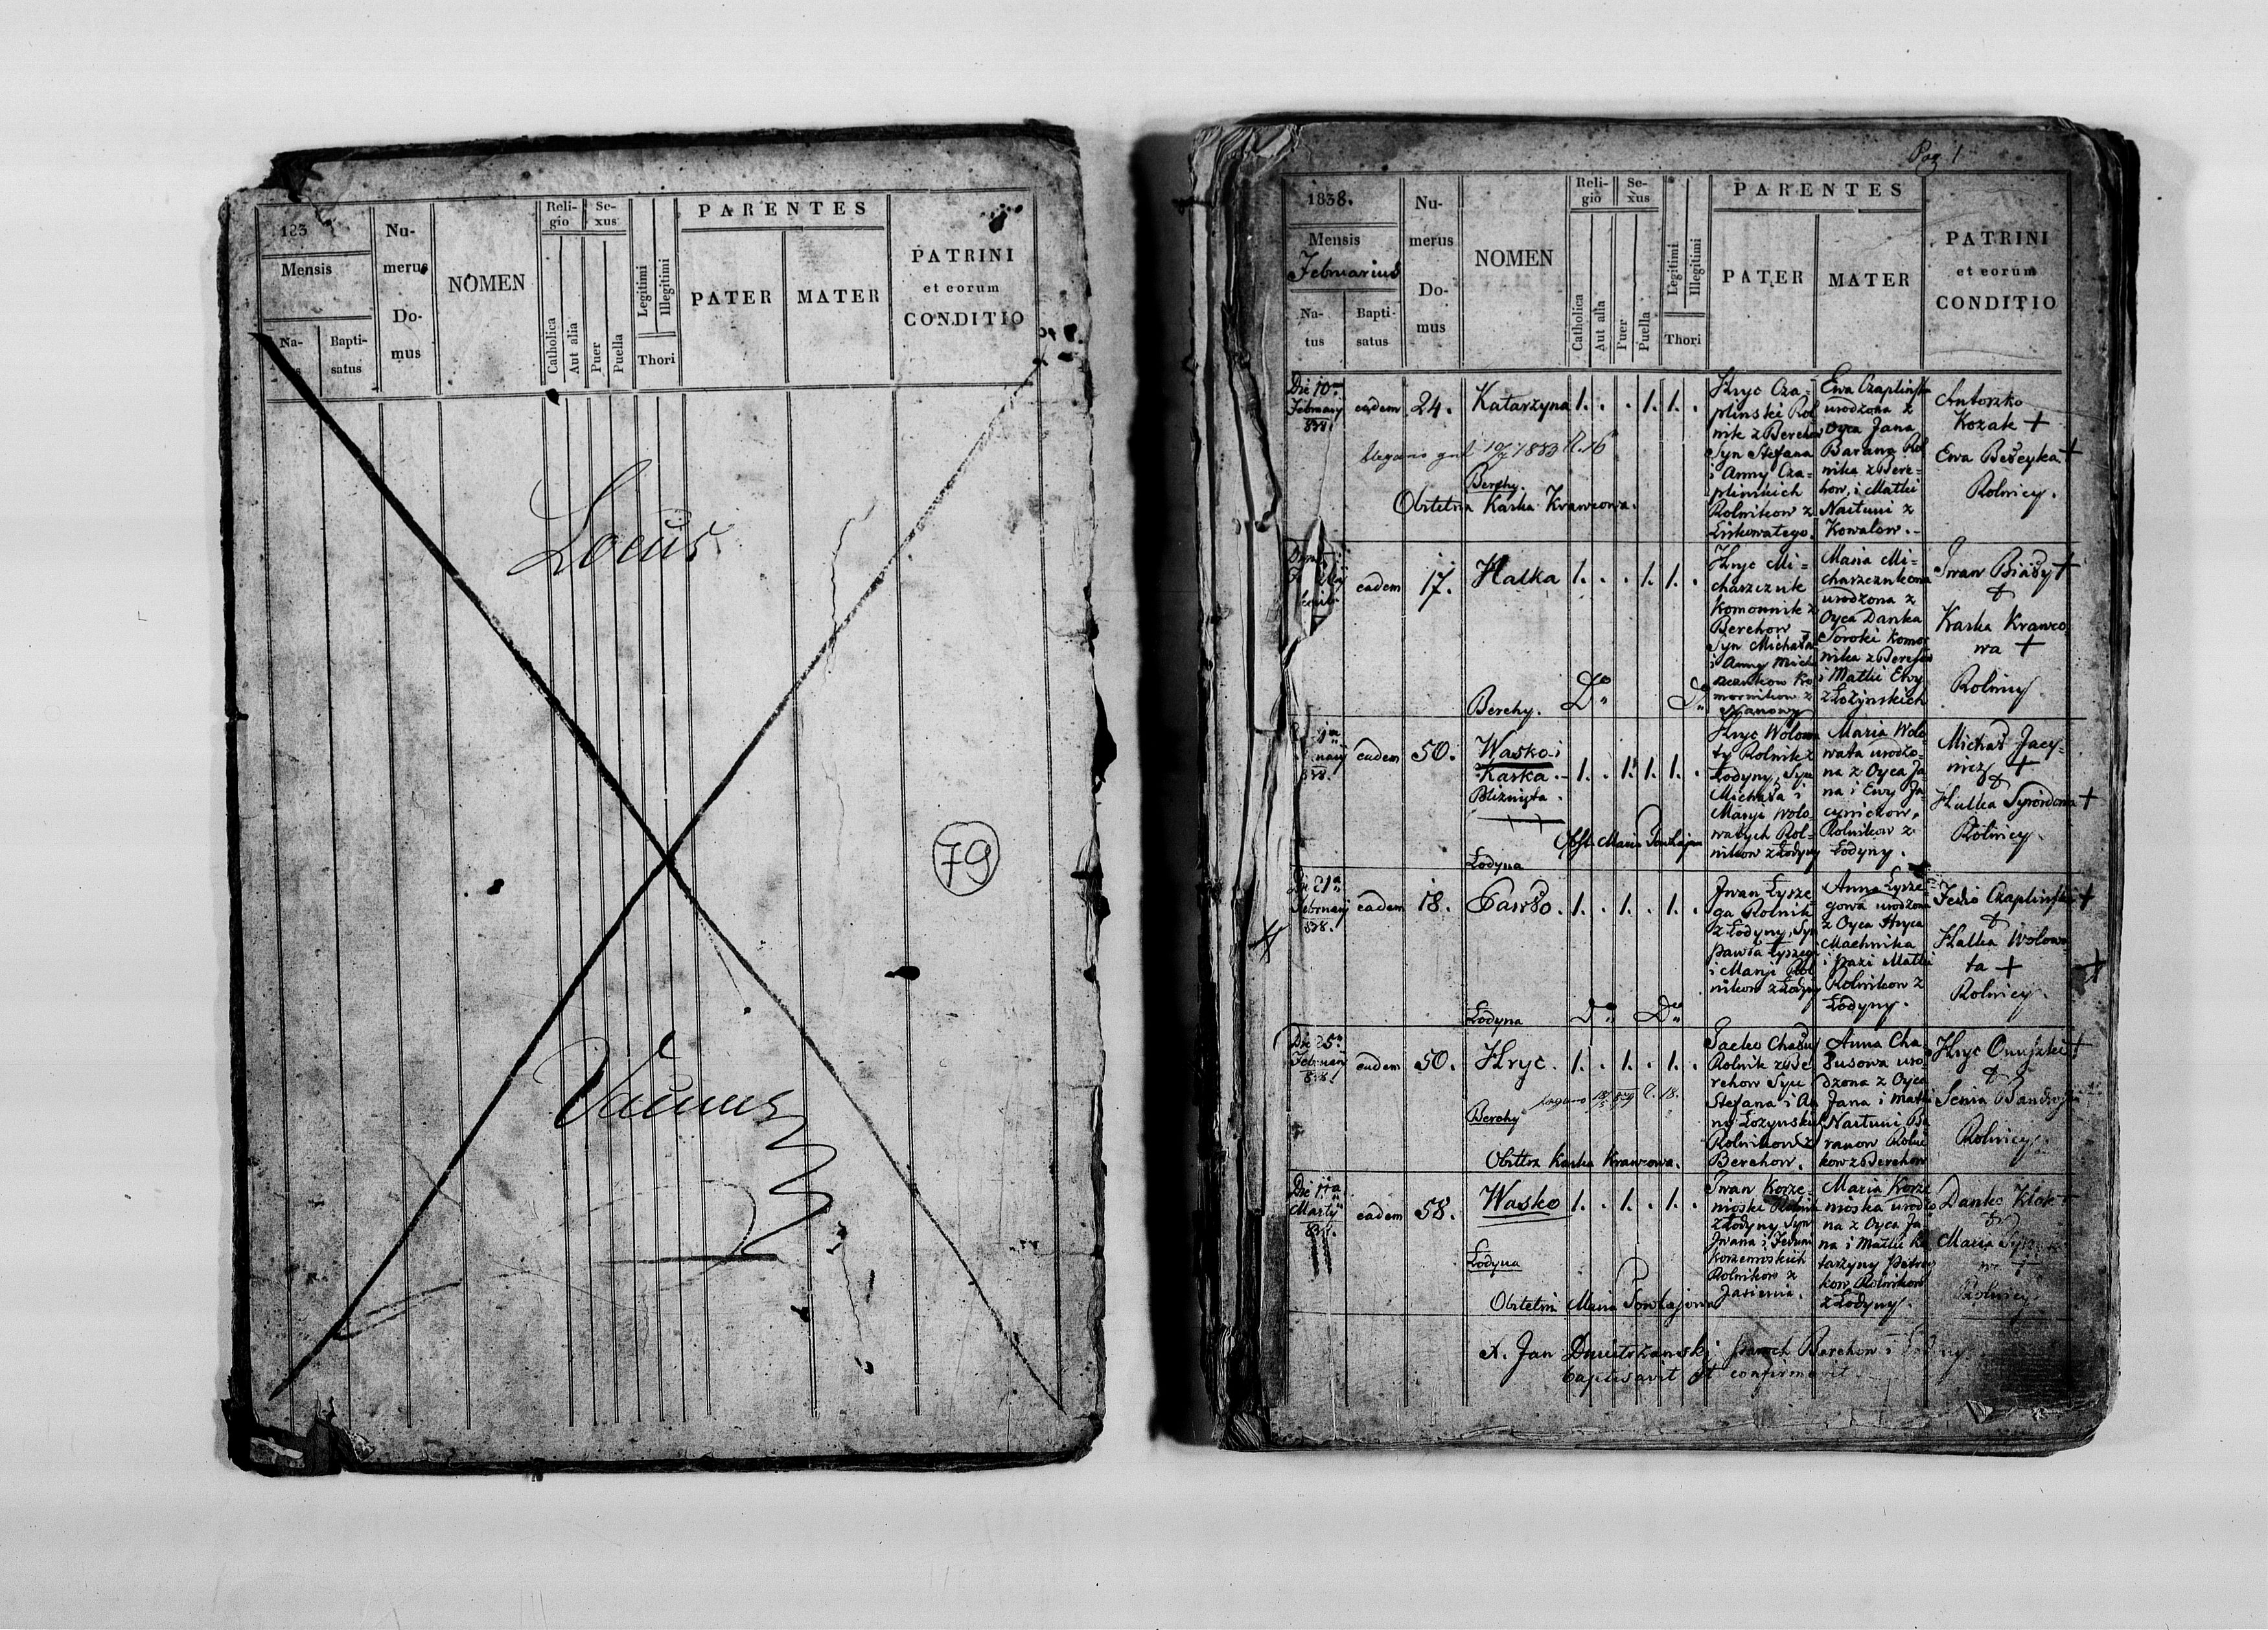 183
Mensis
Na-
Bapti-
satus
Nu-
merus
Do-
mus
NOMEN
Reli-
gio
Se-
xus
Catholica
Aut alia
Puer
Puella
Legitimi
Illegitimi
Thori
PARENTES
PATER
MATER
PATRINI
et eorum
CONDITIO
Locus
Vacuus
79
Pag 1
1838.
Mensis
Februarius
Na-
tus
Bapti-
satus
Nu-
merus
Do-
mus
NOMEN
Reli-
gio
Se-
xus
Catholica
Aut alia
Puer
Puella
Legitimi
Illegitimi
Thori
PARENTES
PATER
MATER
PATRINI
et eorum
CONDITIO
Die 10ma
Februarij
838.
eadem
24.
Katarzyna
1. . . 1. 1. .
Berehy.
Obstetrix Kaśka Krawcowa.
Hryc Cza-
pliński Rol
nik z Berehow
Syn Stefana
i Anny Cza-
plinskich
Rolnikow z
Liskowatego.
Ewa Czaplińska
urodzona z
Oyca Jana
Barana Rol
nika z Bere-
how, i Matki
Nastuni z
Kowalow.
Antoszko
Kozak +
Ewa +
Rolnicy.
eadem
17.
Halka
1. . . 1. 1. .
Berehy.
Do
Do
Hryc Mi-
charszczuk
Komornik z
Berehow
Syn Michała
i Anny Mich
Maria Mi-
urodzona z
Oyca Danka
Soroki Komor
nika z Berehow
i Matki Ewy
z Łożyńskich
Iwan Biały +
&
Kaśka Krawco
wa +
Rolnicy.
838.
eadem
50.
Waśko i
Kaśka.
Bliznięta.
1. . 1. 1. 1. .
Łodyna
Obst. Maria
Hryc Wołowa
ty Rolnik z
Łodyny, Syn
Michała i
Maryi Woło-
watych Rol-
nikow z Łodyny
Maria Woło
wata urodzo-
na z Oyca Ja
na i Ewy Ja-
cynickow,
Rolnikow z
Łodyny.
Michał Jacy-
nicz +
&
Halka +
Rolnicy.
Die 21a
Februarij
838.
eadem
18.
Pawło.
1. . 1. . 1. .
Łodyna
Do
Do
Iwan Łysze-
ga Rolnik
z Łodyny, Syn
Pawła Łyszegi
i Maryi Rol
nikow z Łodyny
Anna Łysze-
gowa urodzona
z Oyca Hryca
Machnika
i Pazi Matki
Rolnikow z
Łodyny.
Fedio Czapliński +
&
Halka Wołowa
ta +
Rolnicy.
Die 25a
Februarij
838.
eadem
50.
Hryc.
1. . 1. . 1. .
Berehy
Obsttrx Kaśka Krawcowa.
Rolnik z Be
rehow Syn
Stefana i An
ny Łożynskich
Rolnikow z
Berehow.
Anna Cha
urо-
dzona z Oyca
Jana i Matki
Nastuni Ba
ranow Rolni
kow z Berehow
Hryc +
&
Senia
Rolnicy.
Die 11a
Martij
838.
eadem
58.
Waśko
1. . 1. . 1. .
Łodyna
Obstetrix Maria
Iwan Korze-
nioski Rolnik
z Łodyny Syn
Iwana i
Korzenioskich
Rolnikow z
Jasienia.
Maria Korze
nioska urodzo
na z Oyca Ja
na i Matki Ka
tarzyny Petry
kow Rolnikow
z Łodyny.
Danko +
&
Maria
Rolnicy.
X. Jan Dmitrzanski paroch Berehow i
baptisavit et confirmavit